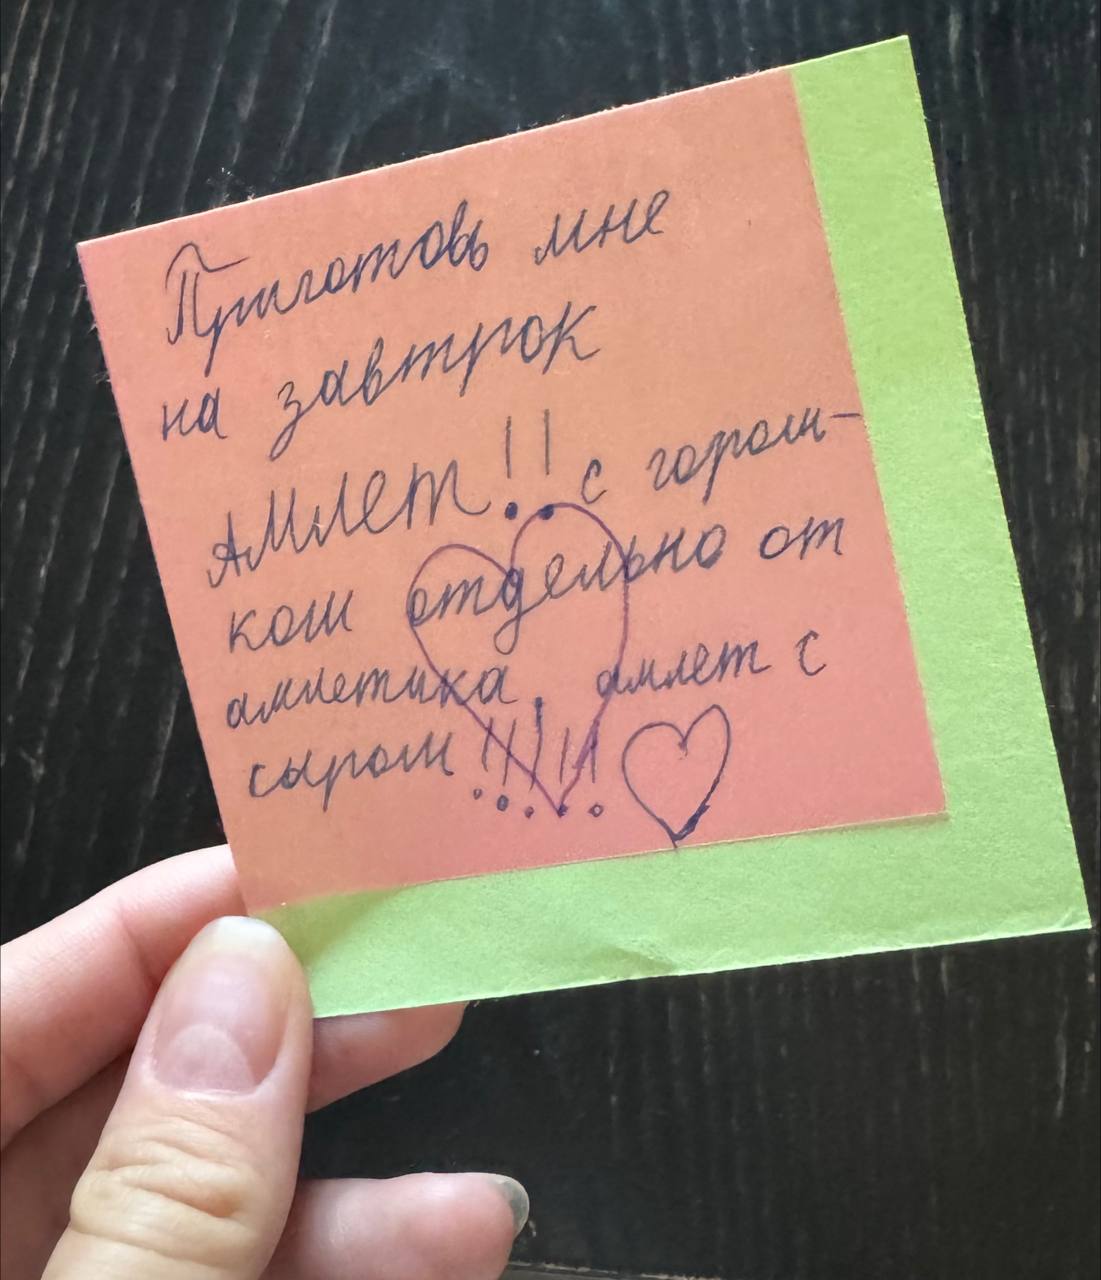 Приготовь мне
на завтрок
АМлет!! с горош-
ком отдельно от
амлетика, амлет с
сыром!!!!!